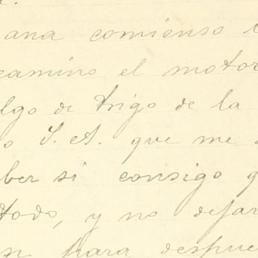 ana comienso
camino el motor
lgo de trigo de la
o S. A. que me
ber si consigo
todo, y no dejar
n para despue